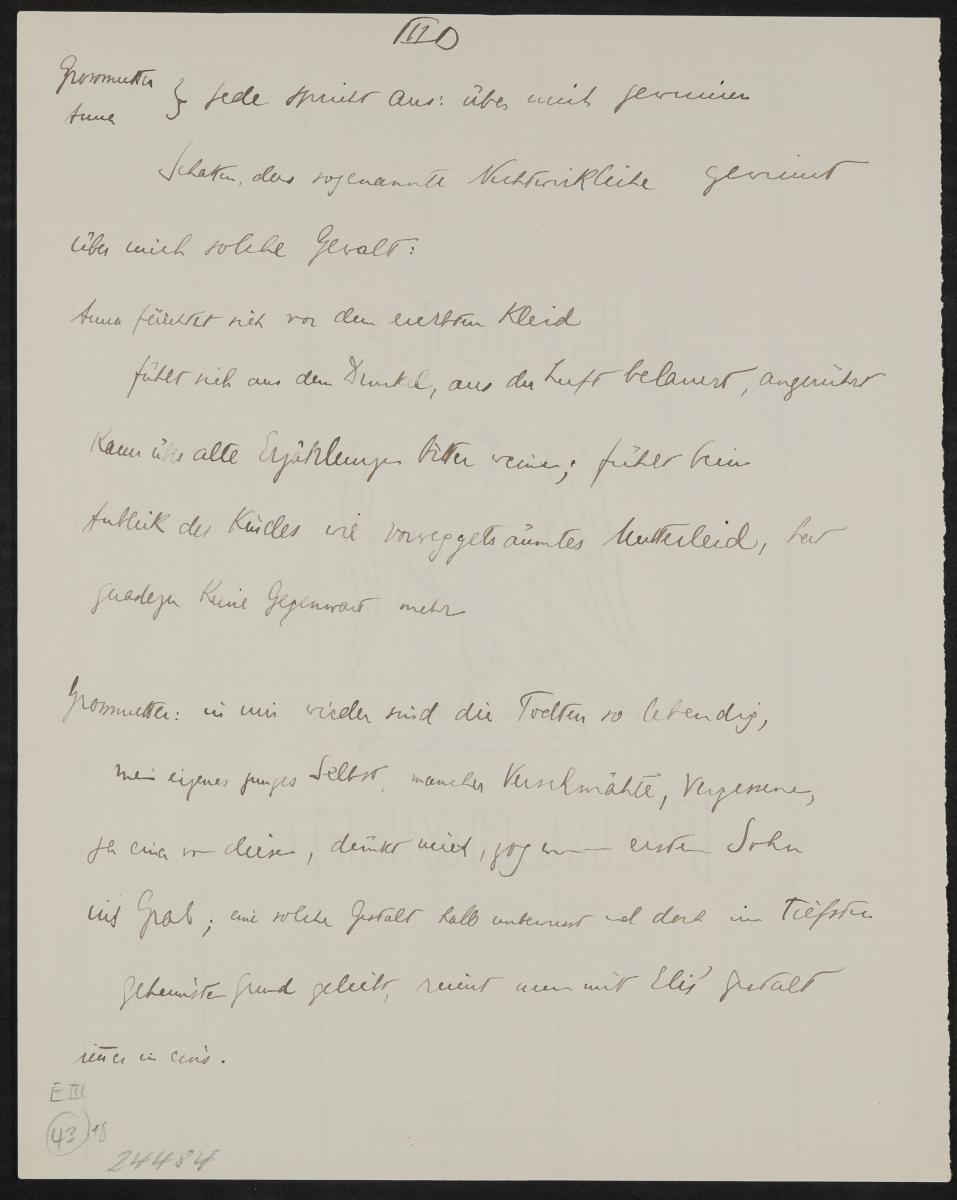 III D
Grossmutter
Anna } jede spricht aus: über mich gewinnen
Schatten, das sogenannte Nichtwirkliche gewinnt
über mich solche Gewalt:
Anna fürchtet sich vor dem ererbten Kleid
fühlt sich aus dem Dunkel, aus der Luft belauert, angerührt
kann über alte Erzählungen bitter weinen; fühlt beim
Anblick des Kindes wie vorweggeträumtes Mutterleid, hat
geradezu keine Gegenwart mehr
Grossmutter: in mir wieder sind die Todten so lebendig,
mein eigenes junges Selbst, mancher Verschmähte, Vergessene,
ja einer von diesen, dünkt mich, zog meinen ersten Sohn
ins Grab; eine solche Gestalt halb unbewusst und doch im Tiefsten
geheimsten Grund geliebt, rinnt nun mit Elis' Gestalt
in eins.
E III
43 18
24484